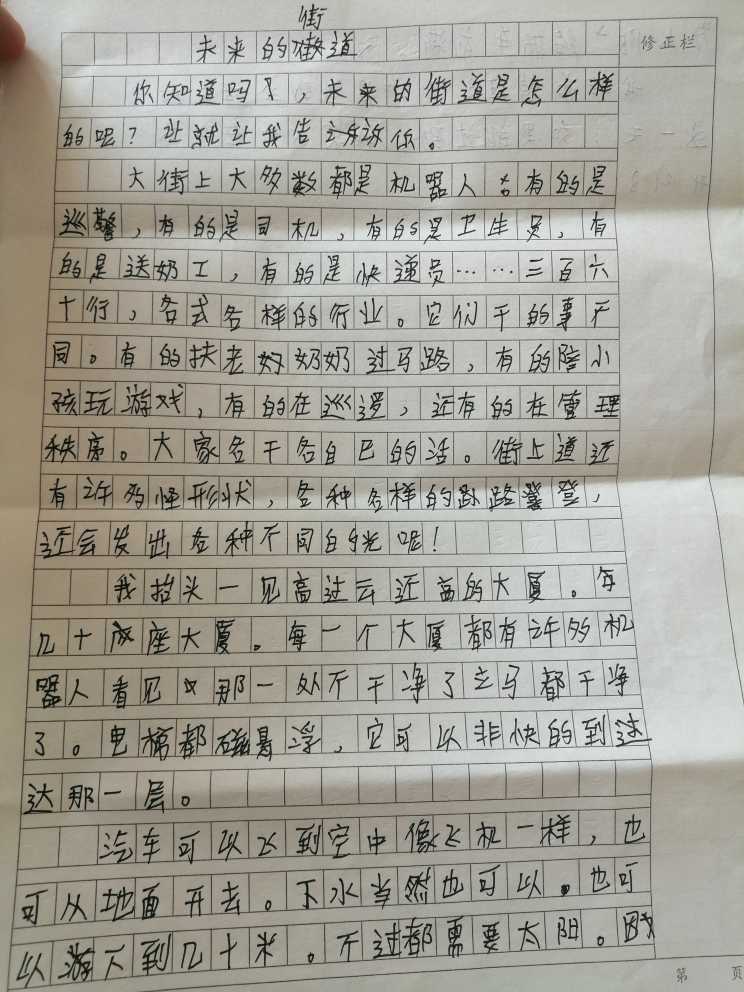 街
未来的道
修正栏
你知道吗？，未来的街道是怎么样
的呢？让就让我告诉你。
大街上大多数都是机器人。有的是
巡警，有的是司机，有的是卫生员，有
的是送奶工，有的是快递员……三百六
十行，各式各样的行业。它们干的事不
同。有的扶老奶奶过马路，有的陪小
孩玩游戏，有的在巡逻，还有的在管理
秩序。大家各干各自己的活。街上道还
有许多怪形状，各种各样的路登，
还会发出各种不同的光呢！
我抬头一见高过云还高的大厦。每
几十座大厦。每一个大厦都有许多机
器人看见那一处不干净了立马都干净
了。电梯都磁悬浮，它可以非快的到过
达那一层。
汽车可以飞到空中像飞机一样，也
可从地面开去。下水当然也可以。也可
以游下到几十米。不过都需要太阳。因
第 页